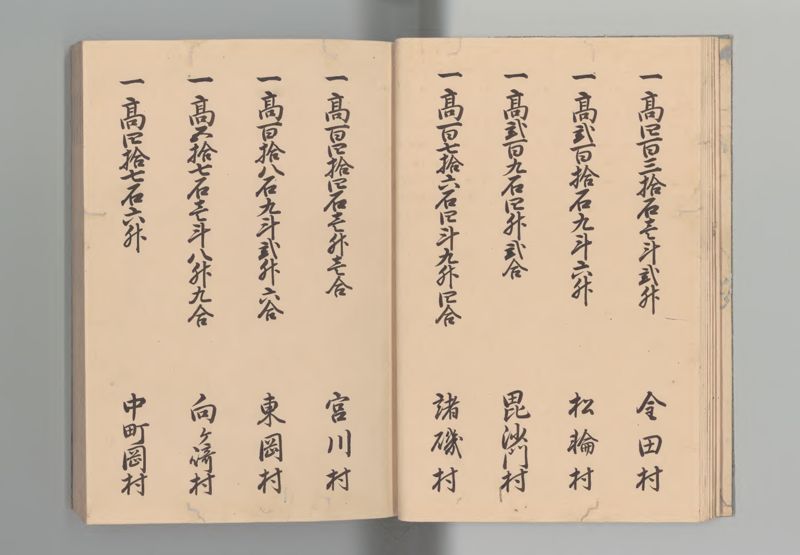 一高四百三拾石壱斗弐升 金田村
一高弐百拾石九斗六升 松輪村
一高弐百九石四升弐合 毘沙門村
一高百七拾六石四斗九升四合 諸磯村
一高百四拾四石壱升壱合 宮川村
一高百拾八石九斗弐升六合 東岡村
一高五拾七石壱斗八升九合 向ヶ崎村
一高四拾七石六升 中町岡村